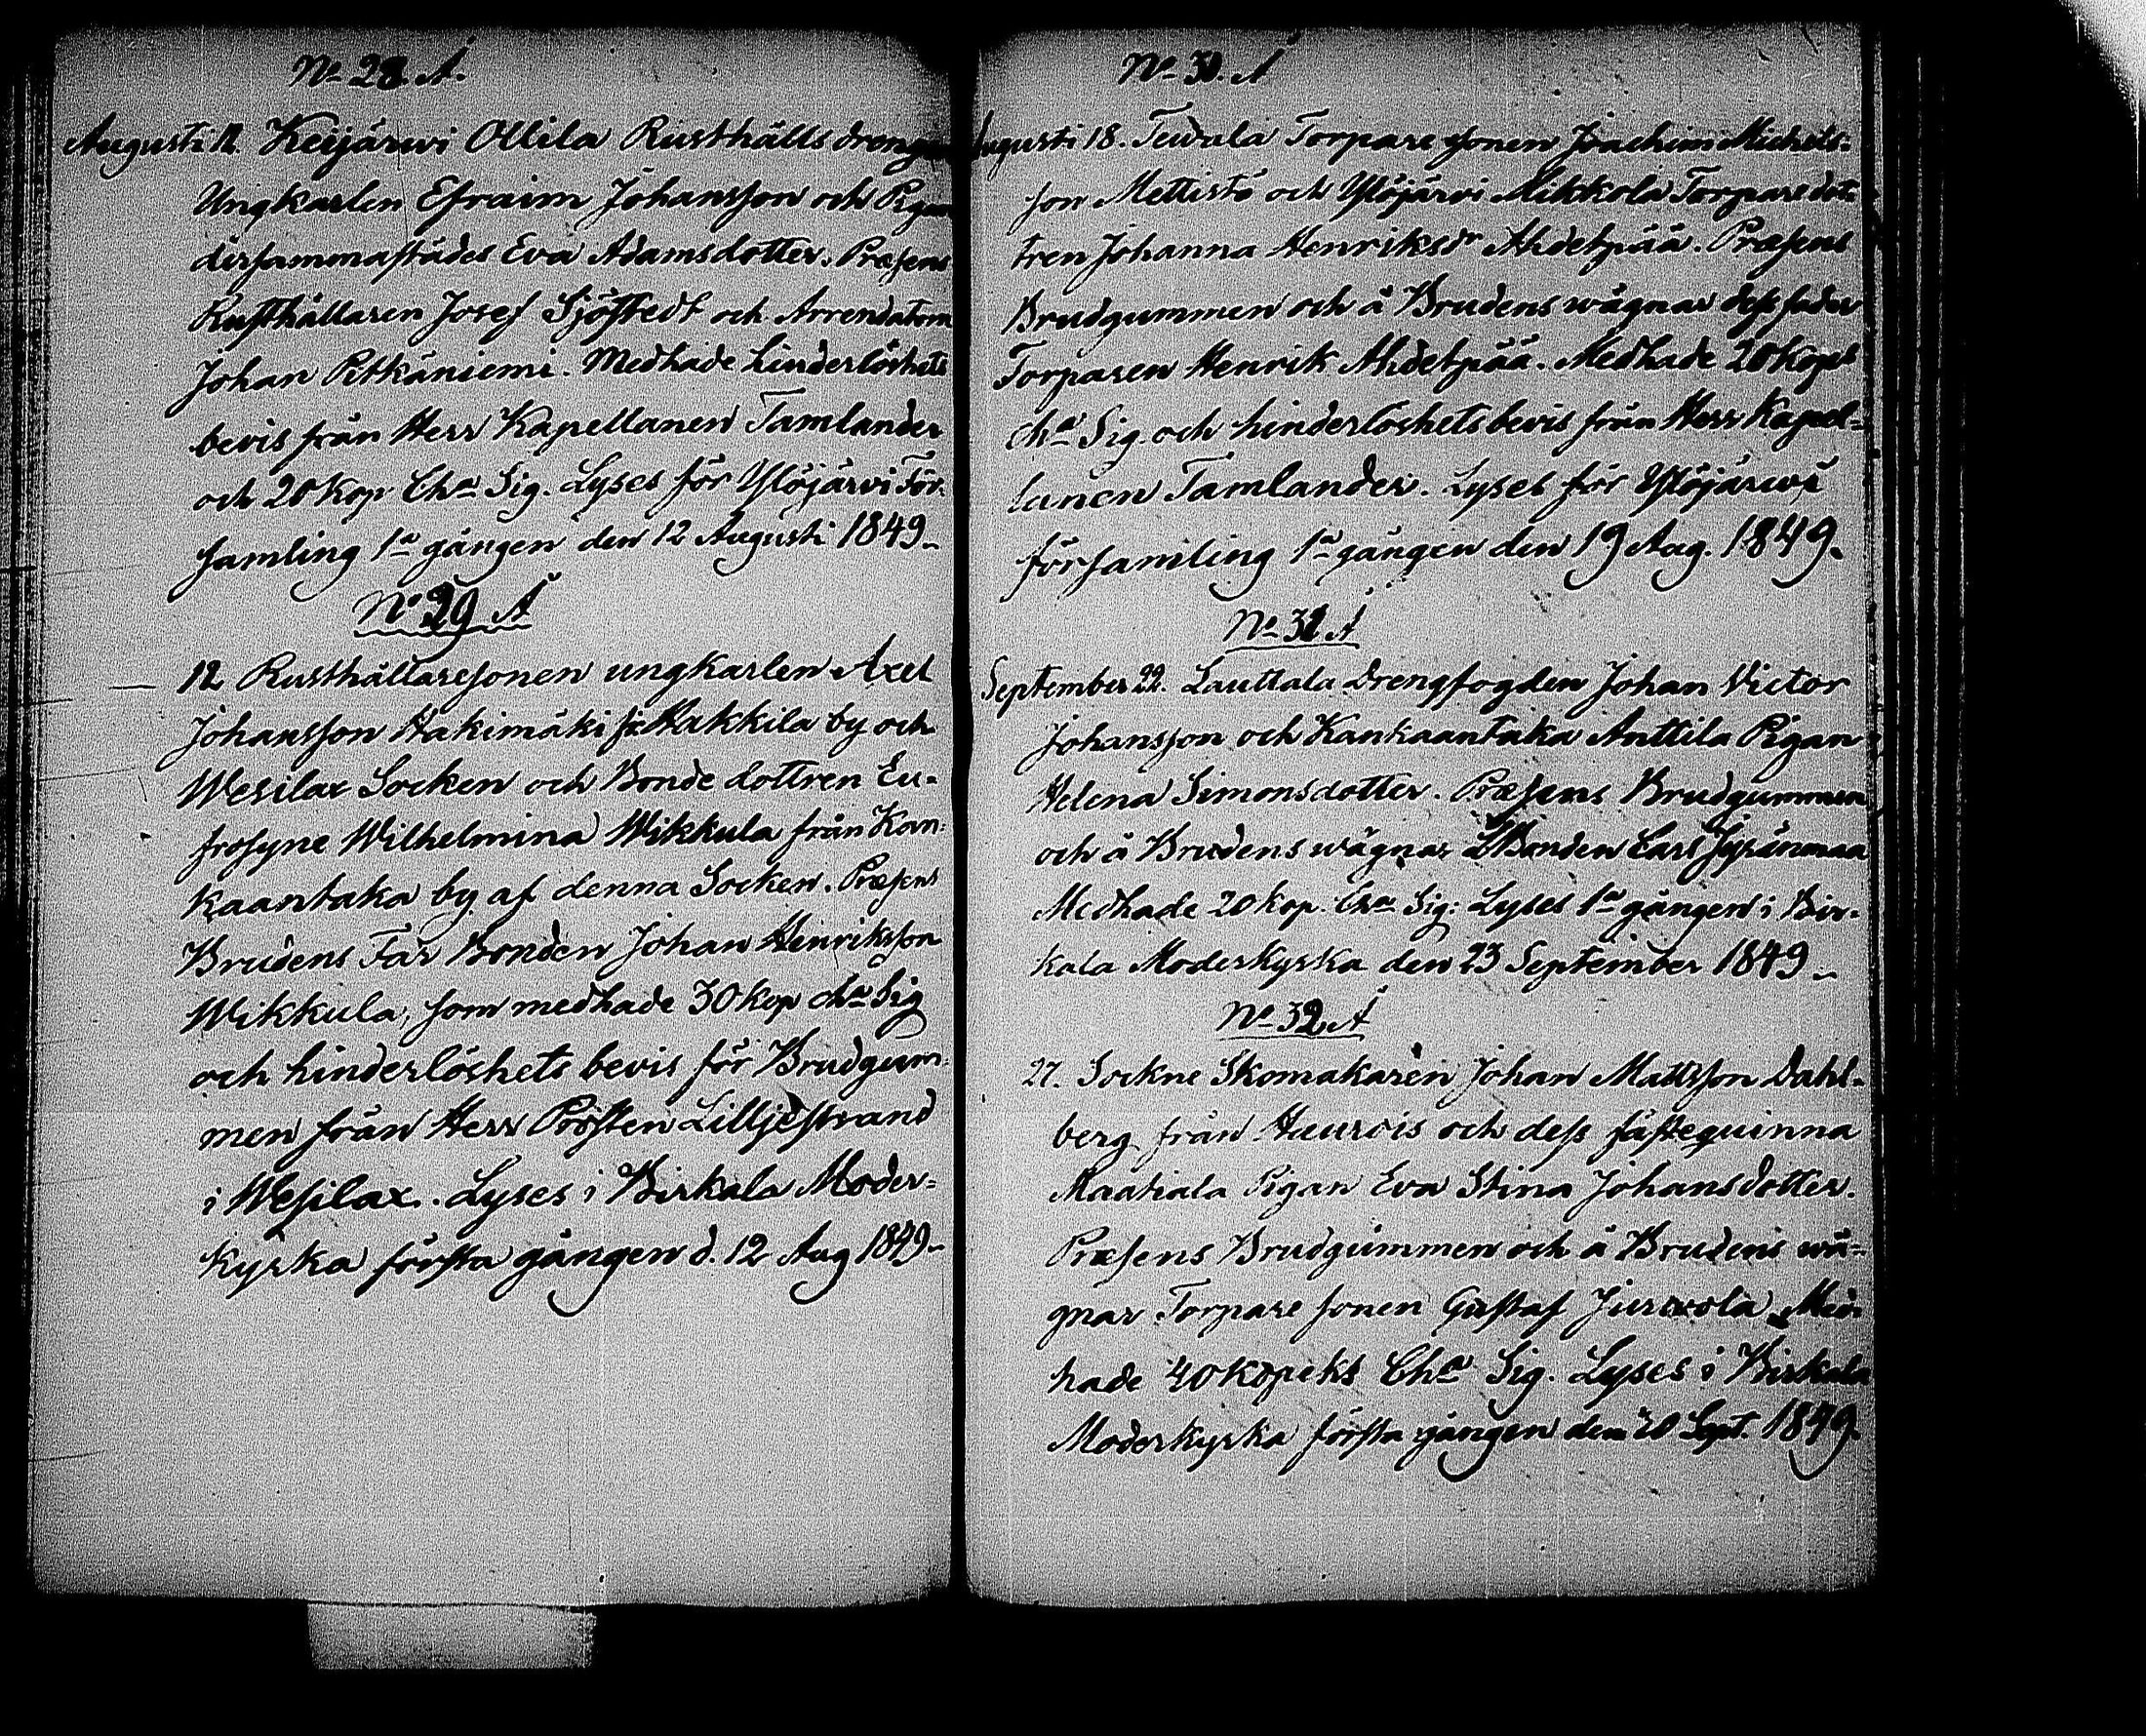 No 28. A.
Augusti 12. Keijärwi Ollila Rusthålls drengen
Ungkarlen Efraim Johansson och Pigan
dersammastädes Eva Adamsdotter. Præsens
Rusthållaren Josef Sjöstedt och Arrendatorn
Johan Pitkäniemi. Medhade hinderlöshets
bevis från Herr Kapellanen Tamlander
och 20 Kop Cha Sig. Lyses för Ylöjärvi För-
samling 1a gången den 12 Augusti 1849.
No 29 A
12 Rusthållaresonen ungkarlen Axel
Johansson Hakimäki från Hakkila by och
Wesilax Socken och Bonde dottren Eu-
frosyne Wilhelmina Wikkula från Kan-
kaantaka by af denna Socken. Præsens
Brudens Far Bonden Johan Henriksson
Wikkula, som medhade 30 kop cha Sig
och hinderlöshets bevis för Brudgum-
men från Herr Prosten Lilljestrand
i Wesilax. Lyses i Birkala Moder-
kyrka första gången d. 12 Aug 1849.
No 30. A
Augusti 18. Teudula Torpare sonen Joachim Michels-
son Mettistö och Ylöjärvi Mikkola Torpare dot-
tren Johanna Henriksdr Ahdetpää. Præsens
Brudgummen och å Brudens wägnar dess fader
Torparen Henrik Ahdetpää. Medhade 20 Kops
cha Sig. och hinderlöshetsbevis från Herr Kapel-
lanen Tamlander. Lyses för Ylöjärwi
församling 1a gången den 19 Aug. 1849.
No 31 A
September 22. Lauttala Drengfogden Johan Victor
Johansson och Kankaantaka Anttila Pigan
Helena Simonsdotter. Præsens Brudgummen
och å Brudens wägnar Bonden Lars
Medhade 20 kop. Cha Sig: Lyses 1a gången i Bir-
kala Moderkyrka den 23 September 1849.
No 32 A
27. Sockne Skomakaren Johan Mattsson Dahl-
berg från Haurois och dess fästequinna
Maatiala Pigan Eva Stina Johansdotter.
Præsens Brudgummen och å Brudens wä-
gnar Torpare sonen Gustaf Jurwola Med-
hade 40 kopeks Cha Sig. Lyses i Birkala
Moderkyrka första gången den 30 Sept. 1849.